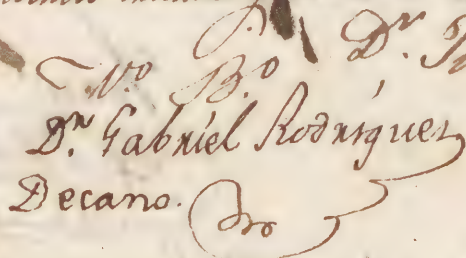 Dr.
V.º B.º
Dr. Gabriel Rodriguez
Decano.